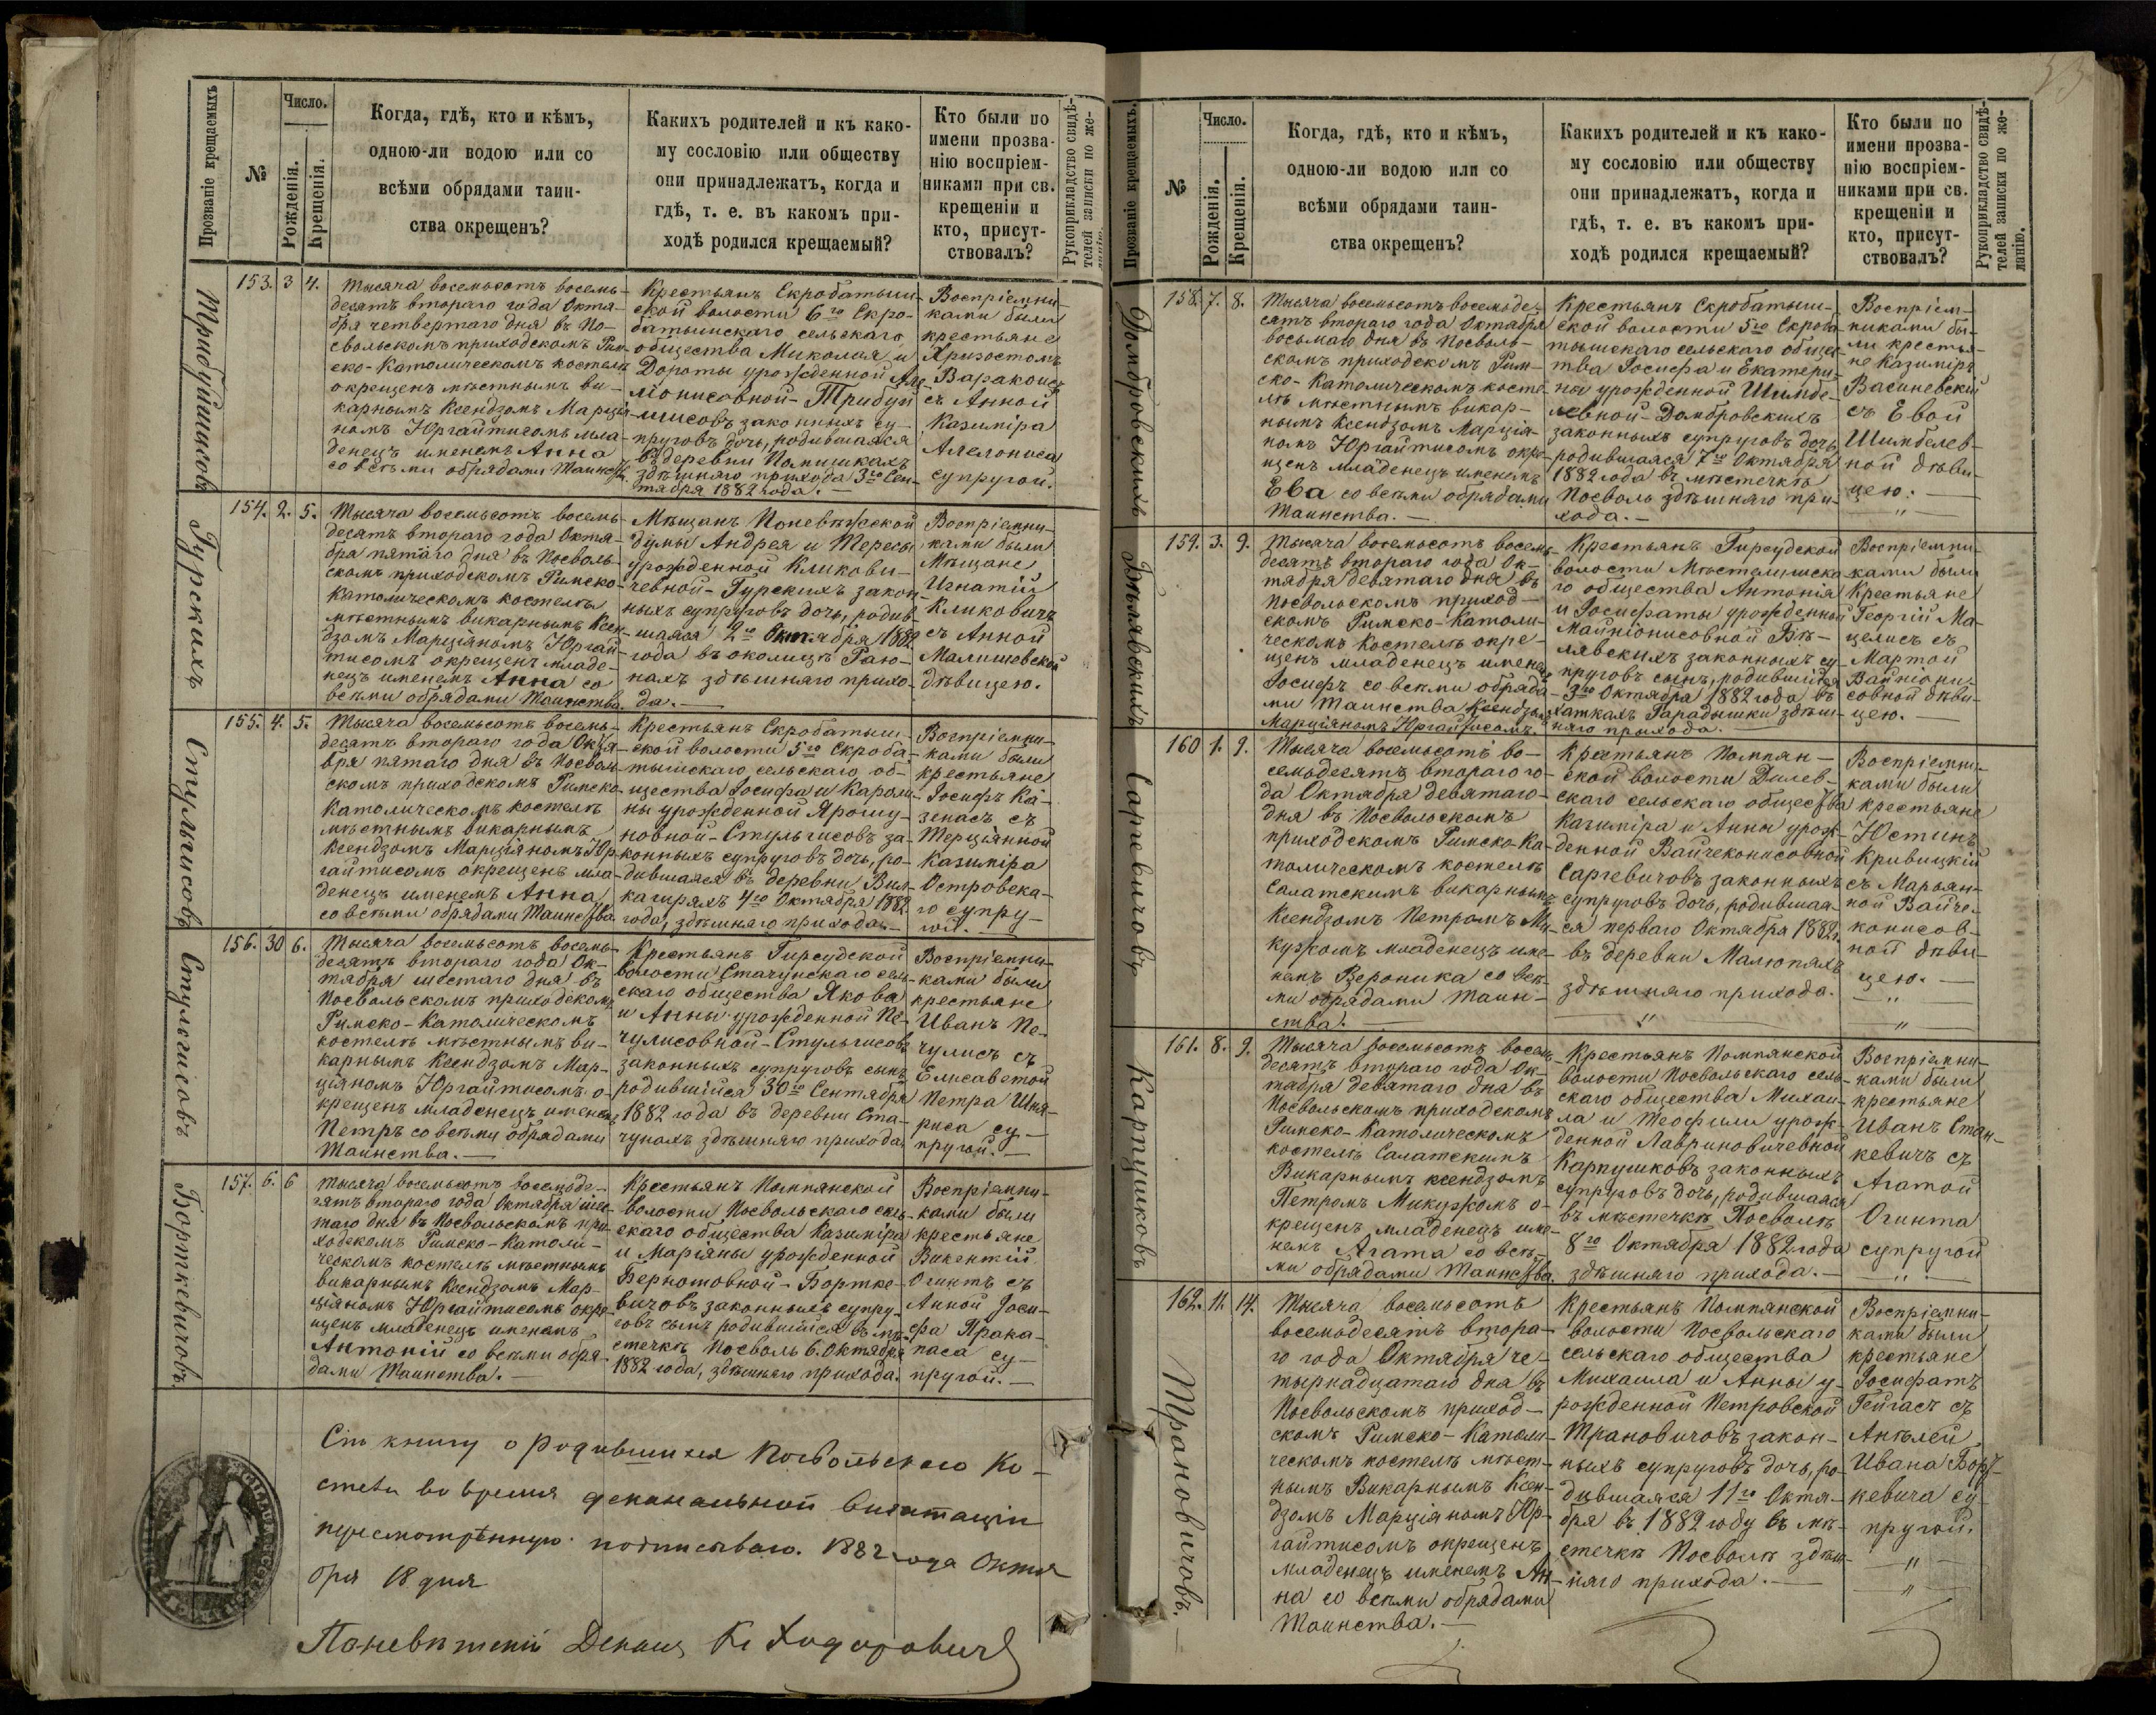 Прозваніе крещаемыхъ
№
Число.
Рожденія.
Крещенія.
Когда, гдѣ, кто и кѣмъ,
одною-ли водою или со
всѣми обрядами таин-
ства окрещенъ?
Какихъ родителей и къ како-
му сословію или обществу
они принадлежатъ, когда и
гдѣ, т. е. въ какомъ при-
ходѣ родился крещаемый?
Кто были по
имени прозва-
нію воспріем-
никами при св.
крещеніи и
кто, присут-
ствовалъ?
Рукоприкладство свидѣ-
телей записки по же-
ланію.
Трибушисовъ
153. 3 4.
Тысяча восемьсотъ восемь-
десятъ втораго года Октя-
бря четвертаго дня въ По-
свольскомъ приходскомъ Рим-
ско-Католическомъ костелѣ
окрещенъ мѣстнымъ ви-
карнымъ Ксендзомъ Марція-
номъ Юргайтисомъ мла-
денецъ именемъ Анна
со всѣми обрядами Таинства.
Крестьянъ Скробатыш-
ской волости 6го Скро-
батышскаго сельскаго
общества Миколая и
Дороты урожденной
законныхъ су-
пруговъ дочь, родившаяся
въ деревни
здѣшняго прихода 3го
1882 года. —
Воспріемни-
ками были
крестьяне
Хризостомъ
съ Анной
Казиміра
супругой.
Гурскихъ
154. 2. 5.
Тысяча восемьсотъ восемь-
десятъ втораго года Октя-
бря пятаго дня въ Посволь-
скомъ приходскомъ Римско-
Католическомъ костелѣ
мѣстнымъ викарнымъ Ксен-
дзомъ Марціяномъ Юргай-
тисомъ окрещенъ младе-
нецъ именемъ Анна со
всѣми обрядами Таинства.
Мѣщанъ Поневѣжской
думы Андрея и Тересы
урожденной Кликови-
чевной-Гурскихъ закон-
ныхъ супруговъ дочь, родив-
шаяся 2го Октября 1882
года въ околицѣ Раю-
нахъ здѣшняго прихо-
да. —
Воспріемни-
ками были
Мѣщане
Игнатій
Кликовичъ
съ Анной
Малишовской
дѣвицею.
Стульгисовъ
155. 4. 5.
Тысяча восемьсотъ восемь-
десятъ втораго года Октя-
бря пятаго дня въ Посволь-
скомъ приходскомъ Римско-
Католическомъ костелѣ
мѣстнымъ викарнымъ
Ксендзомъ Марціяномъ Юр-
гайтисомъ окрещенъ мла-
денецъ именемъ Анна,
со всѣми обрядами Таинства.
Крестьянъ Скробатыш-
ской волости 5го Скроба-
тышскаго сельскаго об-
щества Іосифа и Кароли-
ны урожденной Ярошу-
новной-Стульгисовъ за-
конныхъ супруговъ дочь, ро-
дившаяся въ деревни Вил-
кагиряхъ 4го Октября 1882
года, здѣшняго прихода. —
Воспріемни-
ками были
крестьяне
Іосифъ Ка-
зенасъ съ
Терціянной
Казиміра
Островска-
го супру-
гой.
Стульгисовъ
156. 30 6.
Тысяча восемьсотъ восемь-
десятъ втораго года Ок-
тября шестаго дня въ
Посвольскомъ приходскомъ
Римско-Католическомъ
костелѣ мѣстнымъ ви-
карнымъ Ксендзомъ Мар-
ціяномъ Юргайтисомъ о-
крещенъ младенецъ именемъ
Петръ со всѣми обрядами
Таинства. —
Крестьянъ Гирсудской
волости Стачунскаго сель-
скаго общества Якова
и Анны урожденной Пе-
чулисовной-Стульгисовъ
законныхъ супруговъ сынъ
родившійся 30го Сентября
1882 года въ деревни Ста-
чунахъ здѣшняго прихода.
Воспріемни-
ками были
крестьяне
Иванъ Пе-
чулисъ съ
Елисаветой
Петра
су-
пругой. —
Борткевичовъ
157. 6. 6
Тысяча восемьсотъ восемьде-
сятъ втораго года Октября шес-
таго дня въ Посвольскомъ при-
ходскомъ Римско-Католи-
ческомъ костелѣ мѣстнымъ
викарнымъ Ксендзомъ Мар-
ціяномъ Юргайтисомъ окре-
щенъ младенецъ именемъ
Антоній со всѣми обря-
дами Таинства. —
Крестьянъ Помпянской
волости Посвольскаго сель-
скаго общества Казиміра
и Маріяны урожденной
Бернотовной-Бортке-
вичовъ законныхъ супру-
говъ сынъ родившійся въ мѣ-
стечкѣ Посволь 6. Октября
1882 года, здѣшняго прихода.
Воспріемни-
ками были
крестьяне
Викентій
Огинтъ съ
Анной Іоси-
фа Прака-
паса су-
пругой. —
Сію книгу о родившихся Посвольскаго Ко-
стела во время деканальной визитаціи
пересмотрѣнную подписываю. 1882 года Октя
бря 18 дня
Поневѣжскій Деканъ Кс Ходоровичъ
53
Прозваніе крещаемыхъ.
№
Число.
Рожденія.
Крещенія.
Когда, гдѣ, кто и кѣмъ,
одною-ли водою или со
всѣми обрядами таин-
ства окрещенъ?
Какихъ родителей и къ како-
му сословію или обществу
они принадлежатъ, когда и
гдѣ, т. е. въ какомъ при-
ходѣ родился крещаемый?
Кто были по
имени прозва-
нію воспріем-
никами при св.
крещеніи и
кто, присут-
ствовалъ?
Рукоприкладство свидѣ-
телей записки по же-
ланію.
Домбровскихъ
158. 7. 8.
Тысяча восемьсотъ восемьде-
сятъ втораго года Октября
восьмаго дня въ Посволь-
скомъ приходскомъ Рим-
ско-Католическомъ косте-
лѣ мѣстнымъ викар-
нымъ Ксендзомъ Марція-
номъ Юргайтисомъ окре-
щенъ младенецъ именемъ
Ева со всѣми обрядами
Таинства. —
Крестьянъ Скробатыш-
ской волости 5го Скроба-
тышскаго сельскаго общес-
тва Іосифа и Екатери-
ны урожденной Шимбе-
левной-Домбровскихъ
законныхъ супруговъ дочь
родившаяся 7го Октября
1882 года въ мѣстечкѣ
Посволь здѣшняго при-
хода. —
Воспріем-
никами бы-
ли крестья-
не Казиміръ
Васиневскій
съ Евой
Шимбелев-
ной дѣви-
цею. —
Бѣлявскихъ
159. 3. 9.
Тысяча восемьсотъ восемь-
десятъ втораго года Ок-
тября девятаго дня въ
Посвольскомъ приход-
скомъ Римско-Католи-
ческомъ Костелѣ окре-
щенъ младенецъ именемъ
Іосифъ со всѣми обряда-
ми Таинства Ксендзомъ
Марціяномъ Юргайтисомъ.
Крестьянъ Гирсудской
волости
го общества Антонія
и Іосифаты урожденной
Бѣ-
лявскихъ законныхъ су-
пруговъ сынъ, родившійся
3го Октября 1882 года въ
хаткахъ Гарадышки здѣш-
няго прихода.
Воспріемни-
ками были
Крестьяне
Георгій Ма-
целисъ съ
Мартой
дѣви-
цею. —
Саргевичовъ
160 1. 9.
Тысяча восемьсотъ во-
семьдесятъ втораго го-
да Октября девятаго
дня въ Посвольскомъ
приходскомъ Римско-Ка-
толическомъ костелѣ
Салатскимъ викарнымъ
Ксендзомъ Петромъ Ми-
кужомъ младенецъ име-
немъ Вероника со всѣ-
ми обрядами Таин-
ства. —
Крестьянъ Помпян-
ской волости Дилев-
скаго сельскаго общества
Казиміра и Анны урож-
денной Вайчеконисовной
Саргевичовъ законныхъ
супруговъ дочь, родившая-
ся перваго Октября 1882г.
въ деревни Малюпяхъ
здѣшняго прихода.
Воспріемни-
ками были
крестьяне
Юстинъ
Кривицкій
съ Марьян-
ной Вайче-
конисов-
ной дѣви-
цею. —
Карпушковъ
161. 8. 9.
Тысяча восемьсотъ восемь-
десятъ втораго года Ок-
тября девятаго дня въ
Посвольскомъ приходскомъ
Римско-Католическомъ
костелѣ Салатскимъ
Викарнымъ ксендзомъ
Петромъ Микужомъ о-
крещенъ младенецъ име-
немъ Агата со всѣ-
ми обрядами Таинства.
Крестьянъ Помпянской
волости Посвольскаго сель-
скаго общества Михаи-
ла и Теофили урож-
денной Лавриновичевной
Карпушковъ законныхъ
супруговъ дочь, родившаяся
въ мѣстечкѣ Посволѣ
8го Октября 1882 года
здѣшняго прихода. —
Воспріемни-
ками были
крестьяне
Иванъ Стан-
кевичъ съ
Агатой
Огинта
супругой
Трановичовъ. —
162. 11. 14.
Тысяча восемьсотъ
восемьдесятъ втора-
го года Октября че-
тырнадцатаго дня въ
Посвольскомъ приход-
скомъ Римско-Католи-
ческомъ костелѣ мѣст-
нымъ Викарнымъ Ксен-
дзомъ Марціяномъ Юр-
гайтисомъ окрещенъ
младенецъ именемъ Ан-
на со всѣми обрядами
Таинства. —
Крестьянъ Помпянской
волости Посвольскаго
сельскаго общества
Михаила и Анны у-
рожденной Петровской
Трановичовъ закон-
ныхъ супруговъ дочь, ро-
дившаяся 11го Октя-
бря въ 1882 году въ мѣ-
стечкѣ Посволѣ здѣш-
няго прихода. —
Воспріемни-
ками были
крестьяне
Іосифатъ
Гейгасъ съ
Анѣлей
Ивана Борт-
кевича су-
пругой.